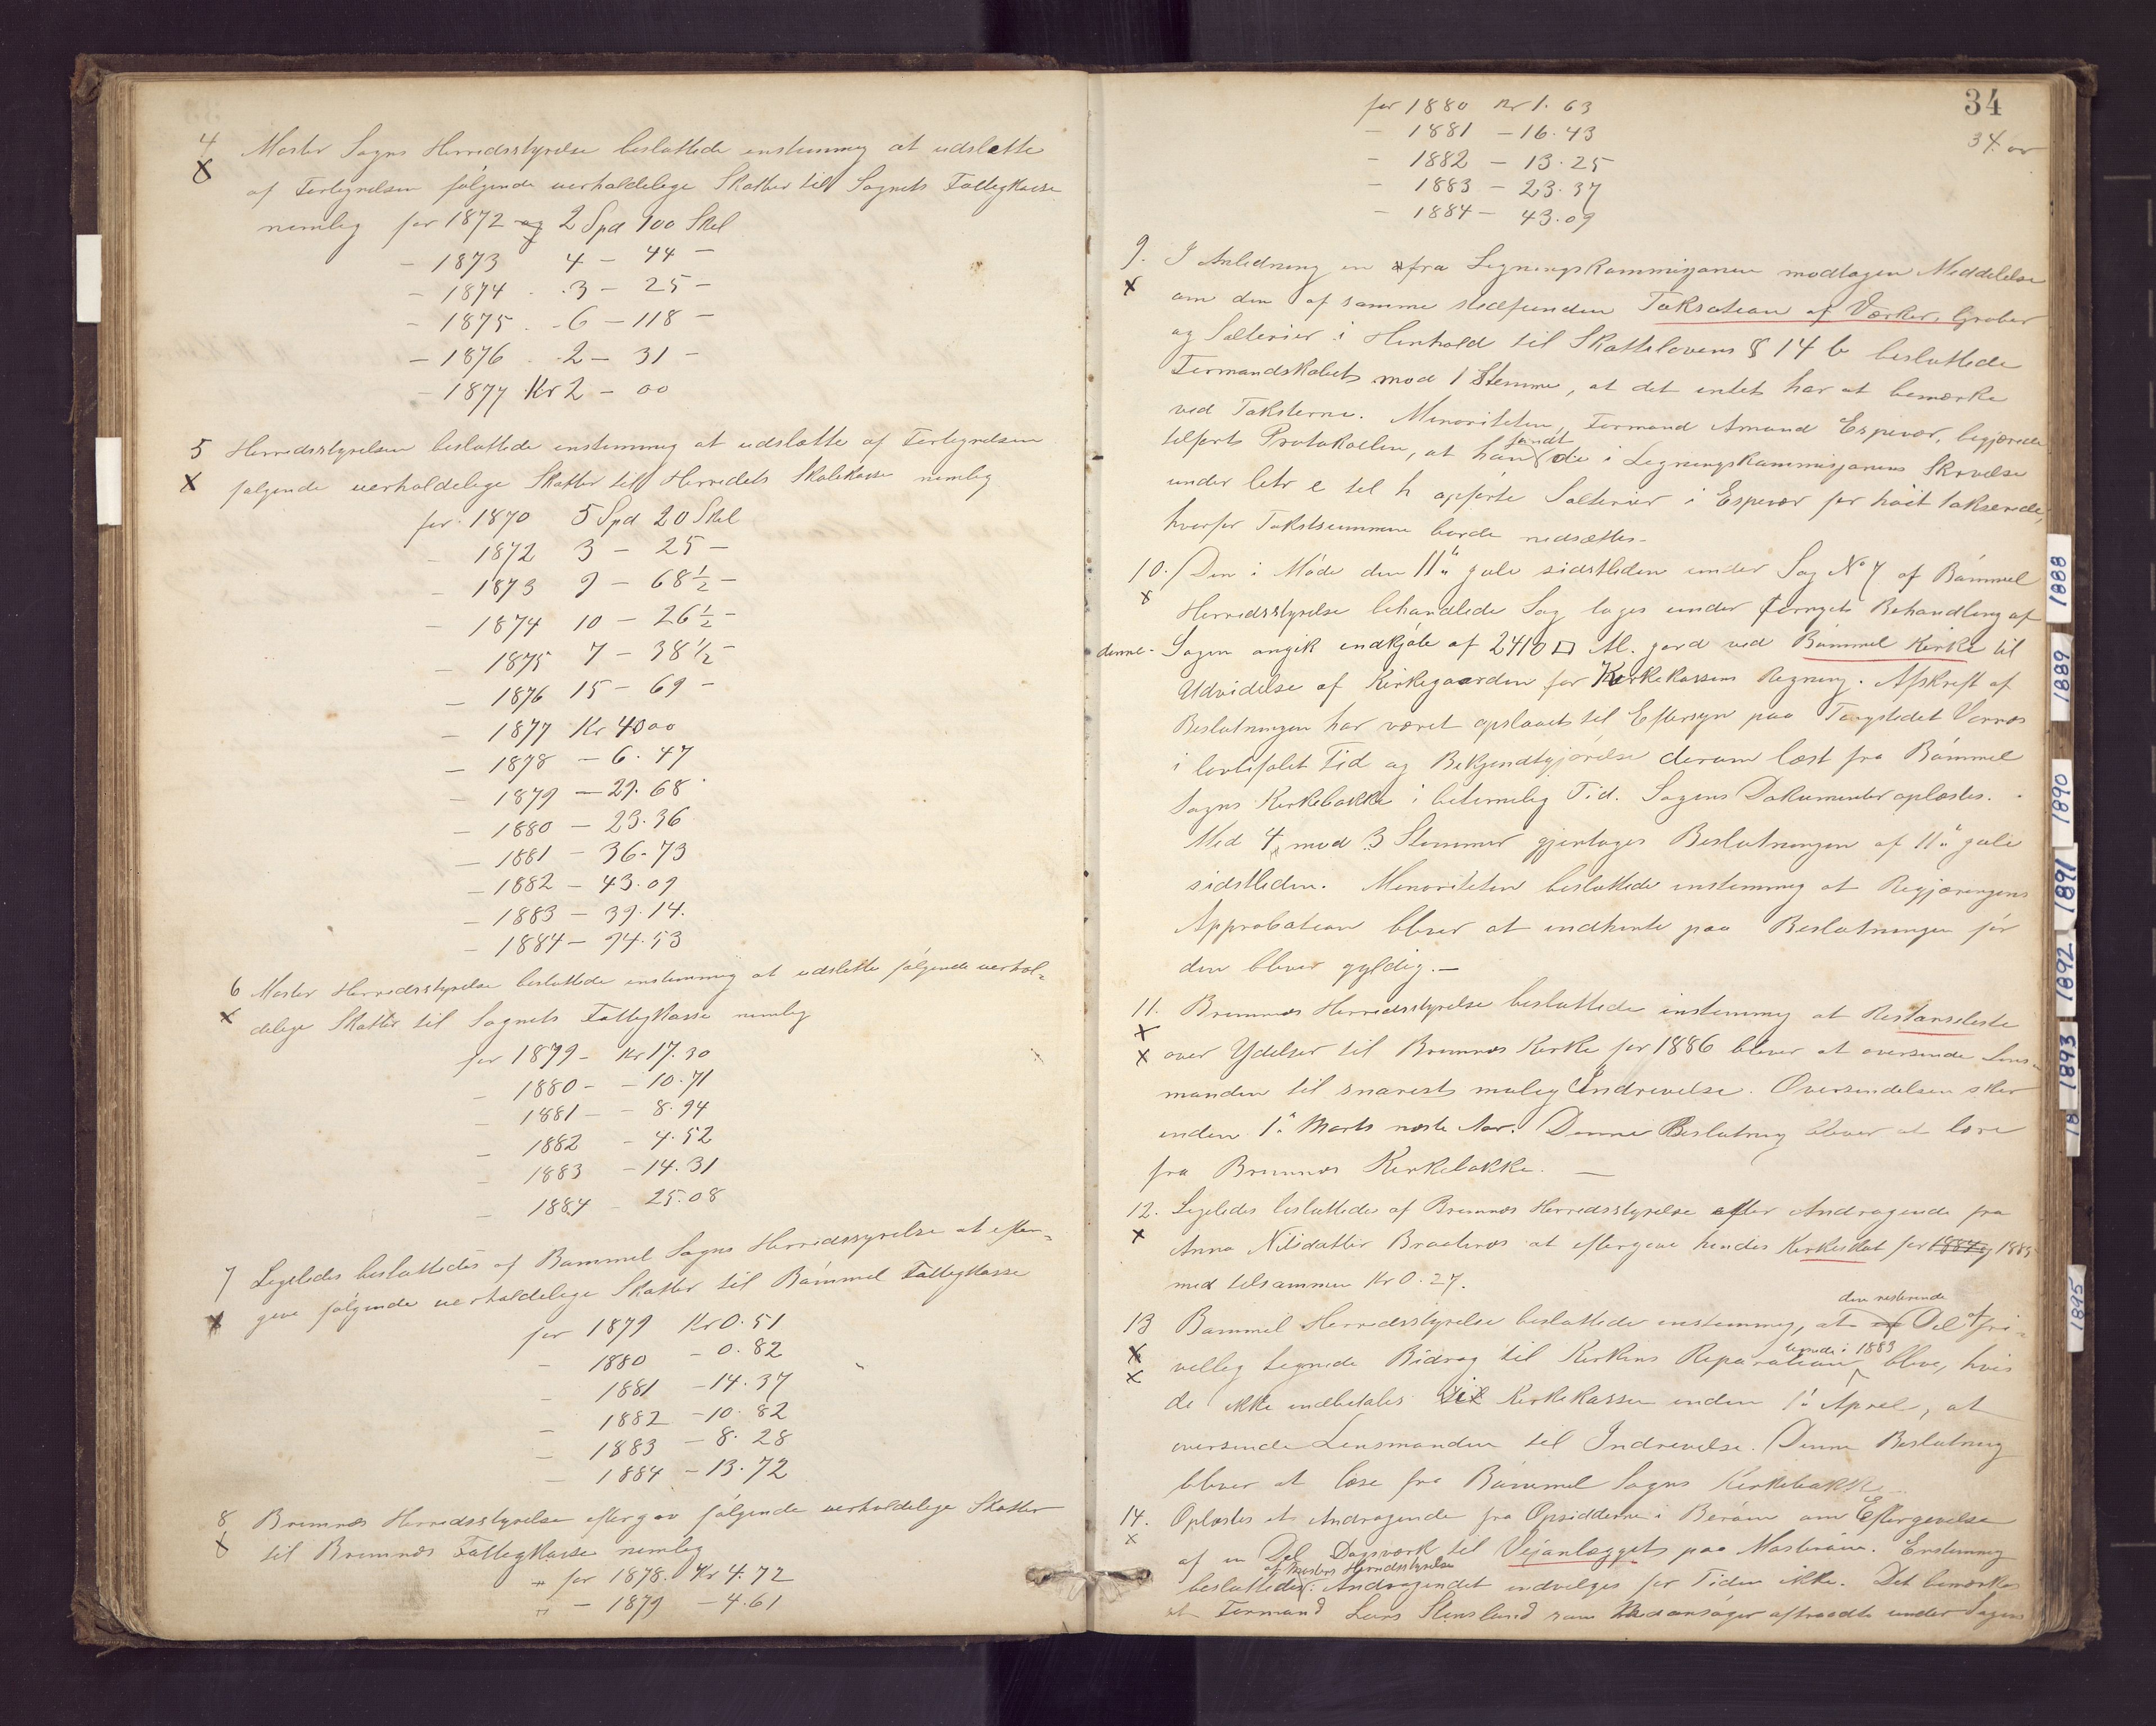 4 Moster Sogns Herredsstyrelse besluttede enstemmig at udslette
af Forlignelsen følgende uerholdelige Skatter til Sognets Fattigkasse
nemlig for 1872 og 2 Spd 100 Skel
- 1873 4 - 44 -
- 1874 . 3 - 25 -
- 1875 . 6 - 118 -
- 1876 . 2 - 31 -
- 1877 Kr 2 - 00
5 Herredsstyrelsen besluttede enstemmig at udslette af Forlignelsen
x følgende uerholdelige Skatter til Herredets Skolekasse nemlig
for 1870 5 Spd 20 Skel
- 1872 3 - 25 -
- 1873 9 - 68½ -
- 1874 10 - 26½ -
- 1875 7 - 38½ -
- 1876 15 - 69 -
- 1877 Kr 40 00
- 1878 - 6.47
- 1879 - 29.68
- 1880 - 23.36
- 1881 - 36.73
- 1882 - 43.09
- 1883 - 39.14.
- 1884 - 94.53
6 Moster Herredsstyrelse besluttede enstemmig at udslette følgende uerhol=
x delige Skatter til Sognets Fattigkasse nemlig
for 1879 - Kr 17.30
- 1880 - - 10.71
- 1881 - - 8.94
- 1882 - 4.52
- 1883 - 14.31
- 1884 - 25.08
7 Ligeledes besluttedes af Bømmel Sogns Herredsstyrelse at efter=
x give følgende uerholdelige Skatter til Bømmel Fattigkasse
for 1879 Kr 0.51
- 1880 - 0.82
- 1881 - 14.37
- 1882 - 10.82
- 1883 - 8.28
- 1884 - 13.72
8 Bremnæs Herredsstyrelse eftergav følgende uerholdelige Skatter
til Bremnæs Fattigkasse nemlig
" for 1878. Kr 4.72
" - 1879 - 4.61
34
34
for 1880 Kr 1.63
- 1881 - 16.43
- 1882 - 13.25
- 1883 - 23.37
- 1884 - 43.09
9. I Anledning en fra Ligningskommisjonen modtagen Meddelelse
x om den af samme stedfunden Taksation af Værker, Gruber
og Salterier i Henhold til Skattelovens § 14 b besluttede
Formandskabet mod 1 Stemme, at det intet har at bemærke
ved Taksterne. Minoriteten, Formand Amund Espevær, begjærede
tilført Protokollen, at han fandt de i Ligningskommisjonens Skrivelse
under letr e til h opførte Salterier i Espevær for høit takserede,
hvorfor Takstsummen burde nedsættes.-
10. Den i Møde den 11" Juli sidstleden under Sag No 7 af Bømmel
x Herredsstyrelse behandlede Sag toges under fornyet Behandling af
denne. - Sagen angik indkjøb af 2410 □ Al. jord ved Bømmel Kirke til
Udvidelse af Kirkegaarden for Kirkekassens Regning. Afskrift af
Beslutningen har været opslaaet til Eftersyn paa Tingstedet Vernæs
i lovbefalet Tid og Bekjendtgjørelse derom læst fra Bømmel
Sogns Kirkebakke i betimelig Tid. Sagens Dokumenter oplæstes.
Med 4 mod 3 Stemmer gjentoges Beslutningen af 11" Juli
sidstleden. Minoriteten besluttede enstemmig at Regjæringens
Approbation bliver at indhente paa Beslutningen før
den bliver gyldig.-
11. Bremnæs Herredsstyrelse besluttede enstemmig at Restanseliste
x
x over Ydelser til Bremnæs Kirke for 1886 bliver at oversende Lens-
manden til snarest mulig Indrivelse. Oversendelsen sker
inden 1" Marts næste Aar. Denne Beslutning bliver at læse
fra Bremnæs Kirkebakke. -
12. Ligeledes besluttede af Bremnæs Herredsstyrelse efter Andragende fra
x Anna Nilsdatter Braatveit at eftergive hendes Kirkeskat for 1884 og 1885
med tilsammen Kr 0.27.
den resterende
13 Bømmel Herredsstyrelse besluttede enstemmig, at Del af fri-
tegnede i 1883
x villig tegnede Bidrag til Kirkens Reparation bliver, hvis
x
de ikke indbetales til Kirkekassen inden 1" April, at
oversende Lensmanden til Indrivelse. Denne Beslutning
bliver at læse fra Bømmel Sogns Kirkebakke
14. Oplæstes et Andragende fra Opsidderne i Berøen om Eftergivelse
x af en Del Dagsværk til Vejanlægget paa Mosterøen. Enstemmig
af Mosters Herredsstyrelse
besluttedes: Andragendet indvilges for Tiden ikke. Det bemærkes
at Formand Lars Stensland som Medansøger aftraadte under Sagens
1888
1889
1890
1891
1892
1893
18
1895